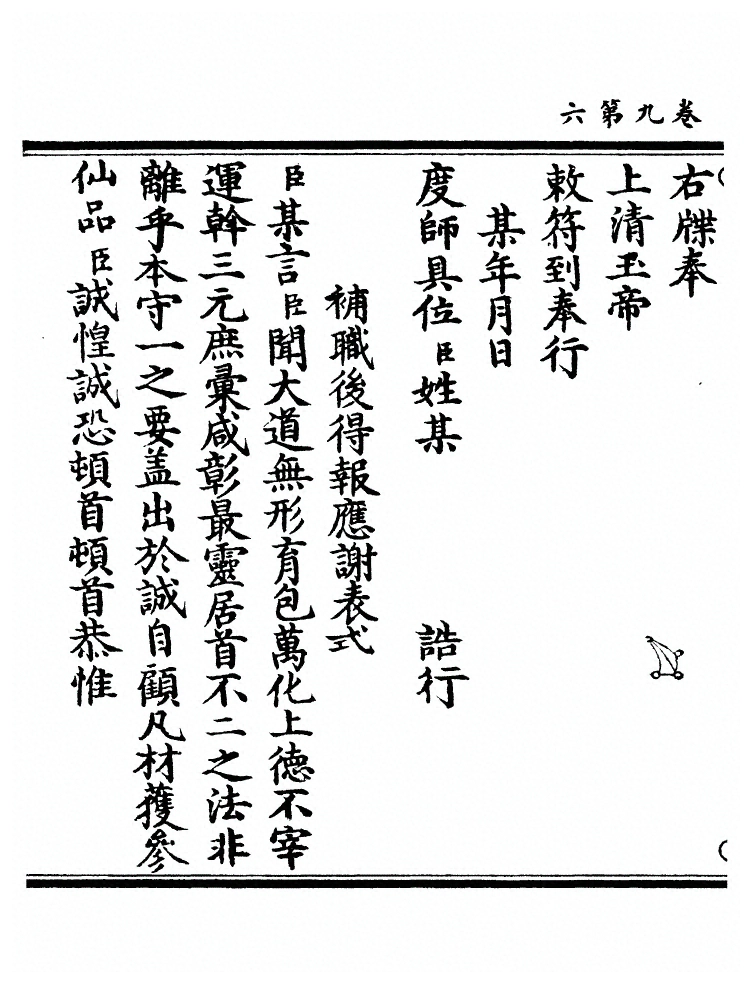 卷九第六
右牒奉
上清玉帝
敕符到奉行
某年月日
度師具位臣姓某 誥行
補職後得報應謝表式
臣某言臣聞大道無形育包萬化上德不宰
運幹三元庶彙咸彰最靈居首不二之法非
離乎本守一之要盖出於誠自顧凡材獲參
仙品臣誠惶誠恐頓首頓首恭惟